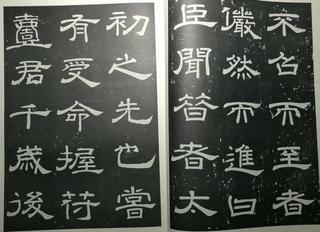 不召而至者
儼然而進曰
臣聞昔者太
初之先也嘗
有受命握符
君千歲後